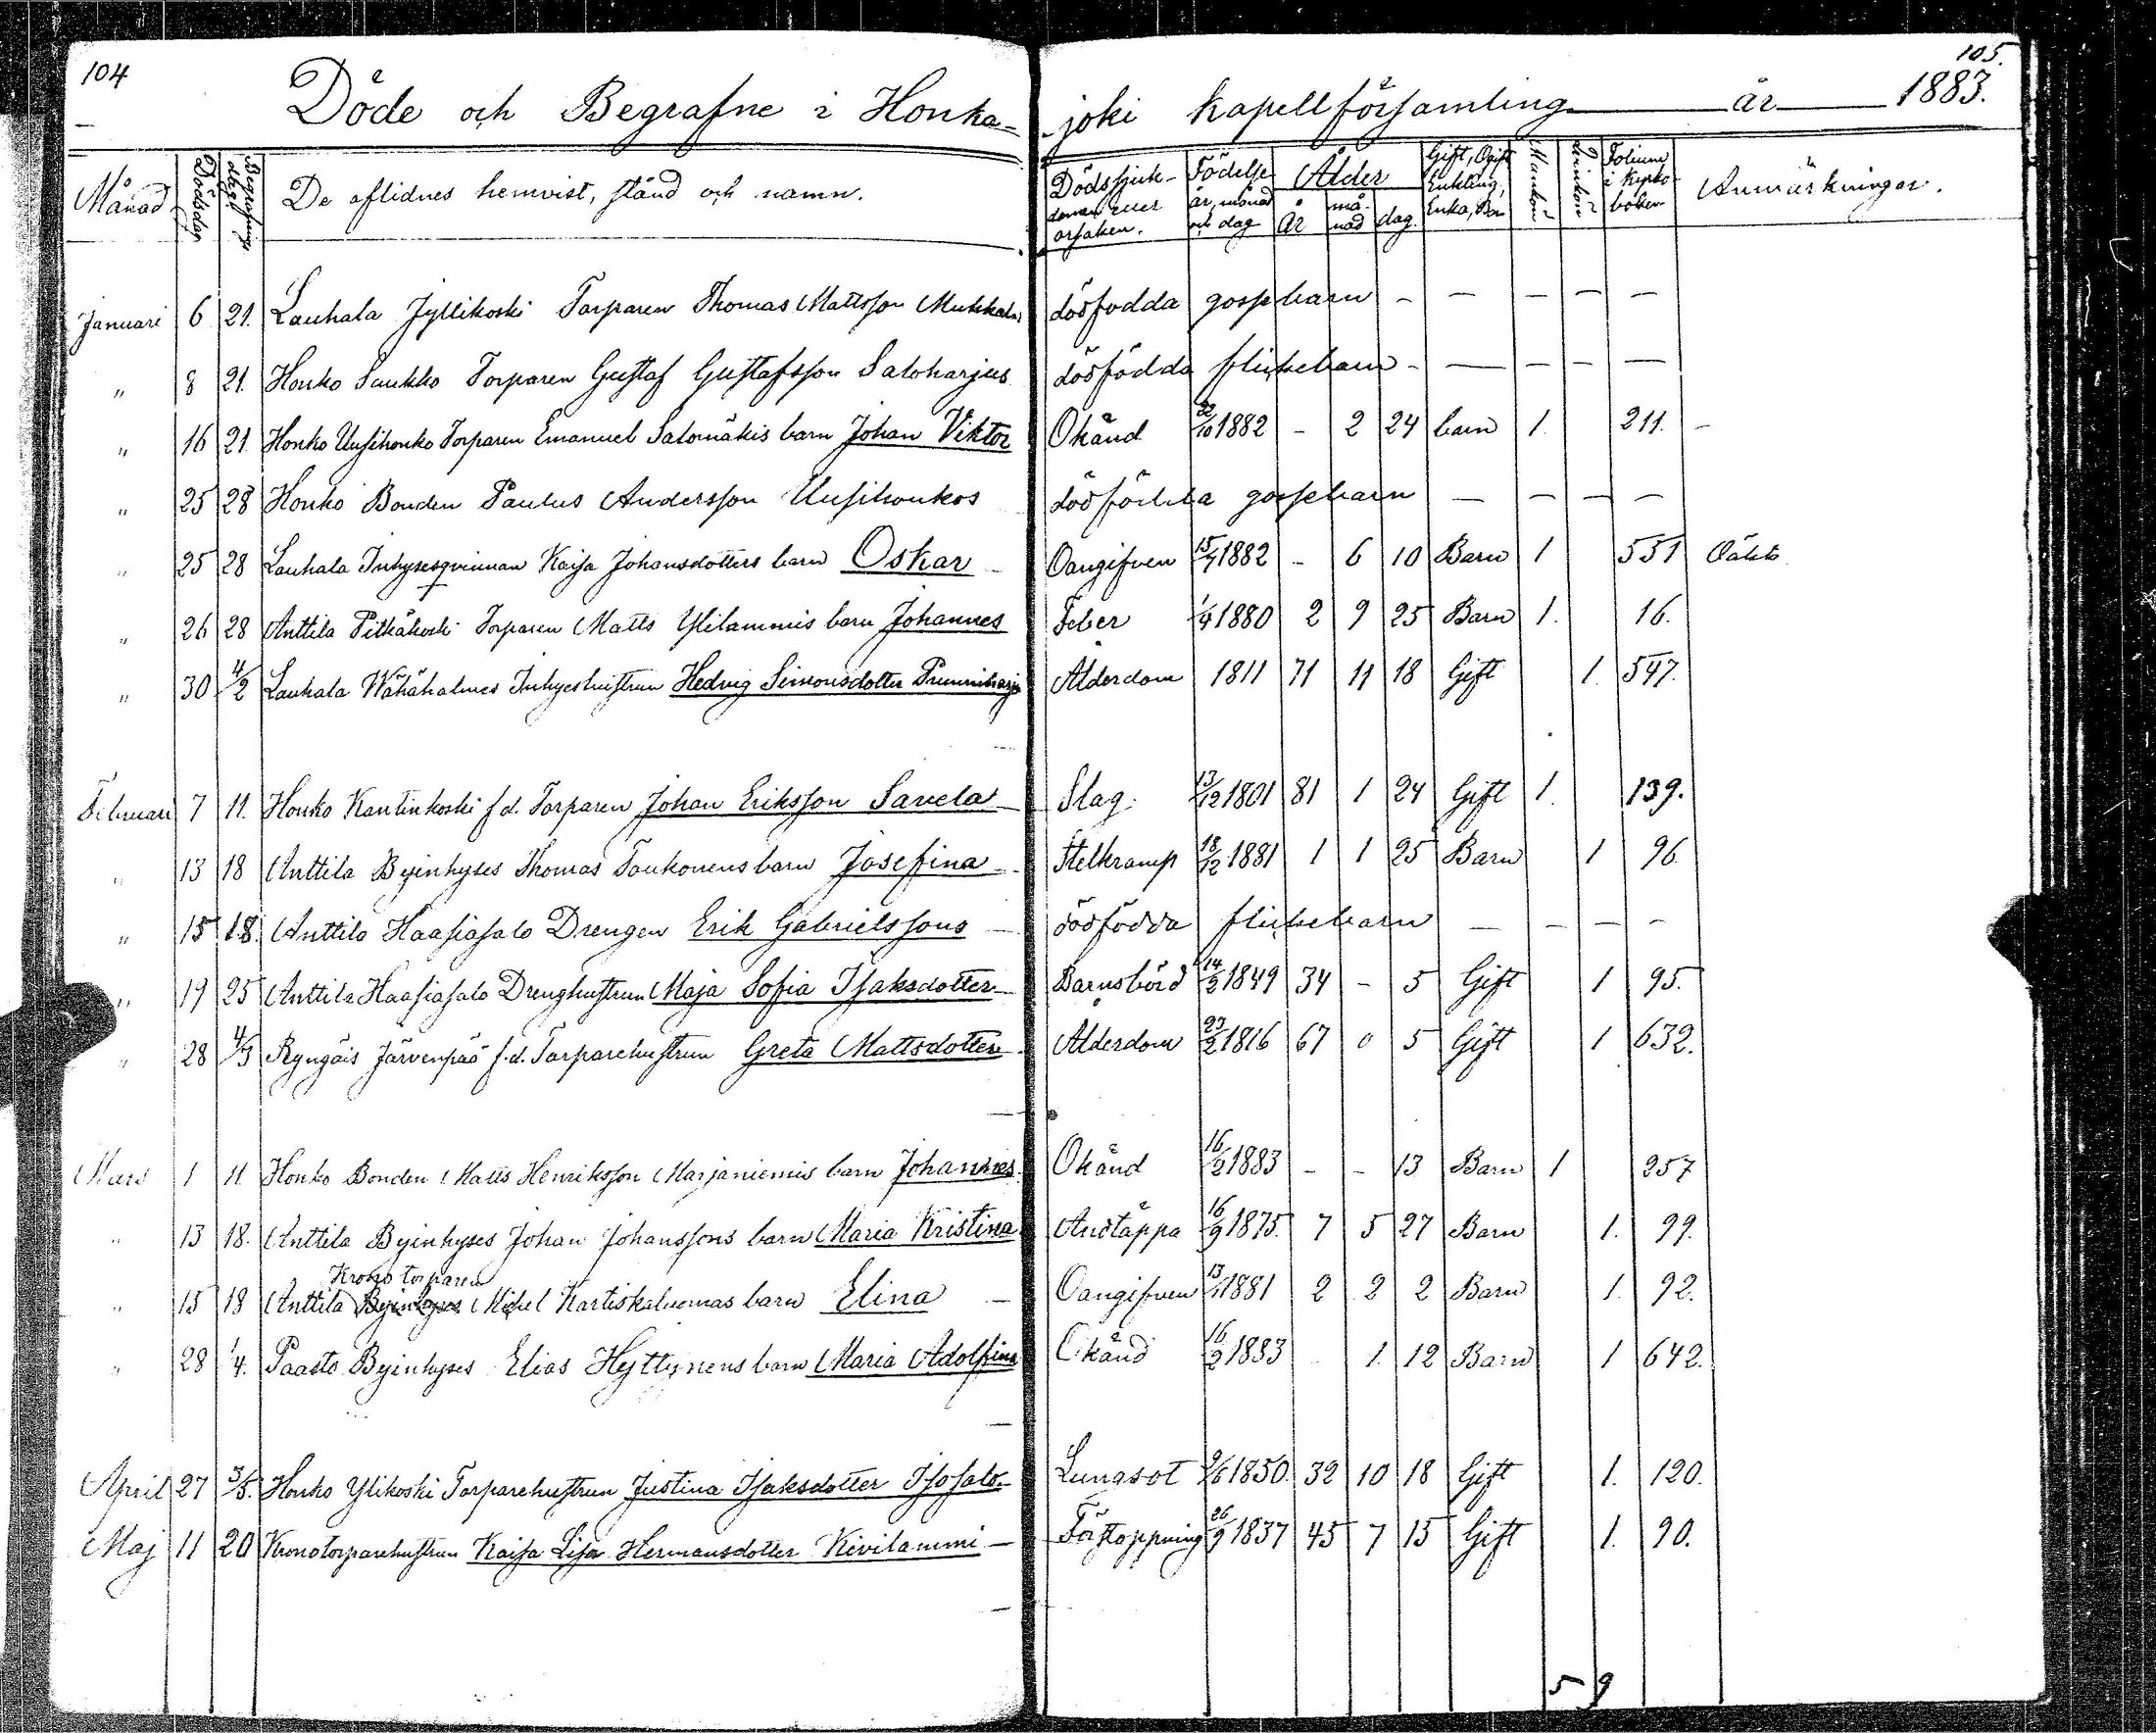 104
105.
Döde och Begrafne i Honka-joki kapellförsamling år 1883.
Månad Dödsdag Begrafnings dag. De aflidnes hemvist, stånd och namn. Dödssjukdomen eller orsaken. Födelse år, månad och dag Ålder År månad dag. Gift, Ogift Enkling, Enka, Barn Mankön Qvinkön Folium i kyrkoboken Anmärkningar.
Januari 6 21. Lauhala Jyllikoski Torparen Thomas Mattsson Mukkalas dödfödda gossebarn - — — — —
„ 8 21. Honko Saukko Torparen Gustaf Gustafsson Saloharjus dödfödda flickebarn - — — — —
„ 16 21 Honko Uusihonko Torparen Emanuel Salomäkis barn Johan Viktor Okänd 22/10 1882 - 2 24 barn 1. 211. -
„ 25 28 Honko Bonden Paulus Andersson Uusihonkos dödfödda gossebarn — — — —
„ 25 28 Lauhala Inhysesqvinnan Kaisa Johansdotters barn Oskar Oangifven 15/7 1882 - 6 10 Barn 1 551 Oäkta
„ 26 28 Anttila Pitkäkoski Torparen Matts Ylilammis barn Johannes Feber 1/4 1880 2 9 25 Barn 1. 16.
„ 30 4/2 Lauhala Wähähalmes Inhyeshustrun Hedvig Simonsdotter Ålderdom 1811 71 11 18 Gift 1. 547.
Februari 7 11. Honko Kantinkoski f.d. Torparen Johan Eriksson Savela Slag. 13/12 1801 81 1 24 Gift 1. 139.
„ 13 18 Anttila Byinhyses Thomas Toukonens barn Josefina Stelkramp 18/12 1881 1 1 25 Barn 1 96.
„ 15 18. Anttila Haasiasalo Drengen Erik Gabrielssons dödfödda flickebarn — — — -
„ 19 25 Anttila Haasiasalo Drenghustrun Maja Sofia Isaksdotter Barnsbörd 14/2 1849 34 - 5 Gift 1 95.
„ 28 4/3 Ryngäis Järvenpää f.d. Torparehustrun Greta Mattsdotter Ålderdom 23/2 1816 67 0 5 Gift 1 632.
Mars 1 11 Honko Bonden Matts Henriksson Marjaniemis barn Johannes Okänd 16/2 1883 - - 13 Barn 1 257
„ 13 18. Anttila Byinhyses Johan Johanssons barn Maria Kristina Andtäppa 16/9 1875. 7 5 27 Barn 1. 99.
Krono torparen
„ 15 18 Anttila Byinhyses Mickel Kartiskaluomas barn Elina Oangifven 13/1 1881 2 2 2 Barn 1. 92.
„ 28 1/4. Paasto Byinhyses Elias Hyttynens barn Maria Adolfina Okänd 16/2 1883 1. 12 Barn 1 642.
April 27 3/5. Honko Ylikoski Torparehustrun Justina Isaksdotter Isosalo Lungsot 9/6 1850. 32 10 18 Gift 1. 120.
Maj 11 20 Kronotorparehustrun Kaisa Lisa Hermansdotter Kivilammi Förstoppning 26/9 1837 45 7 15 Gift 1. 90.
5 9